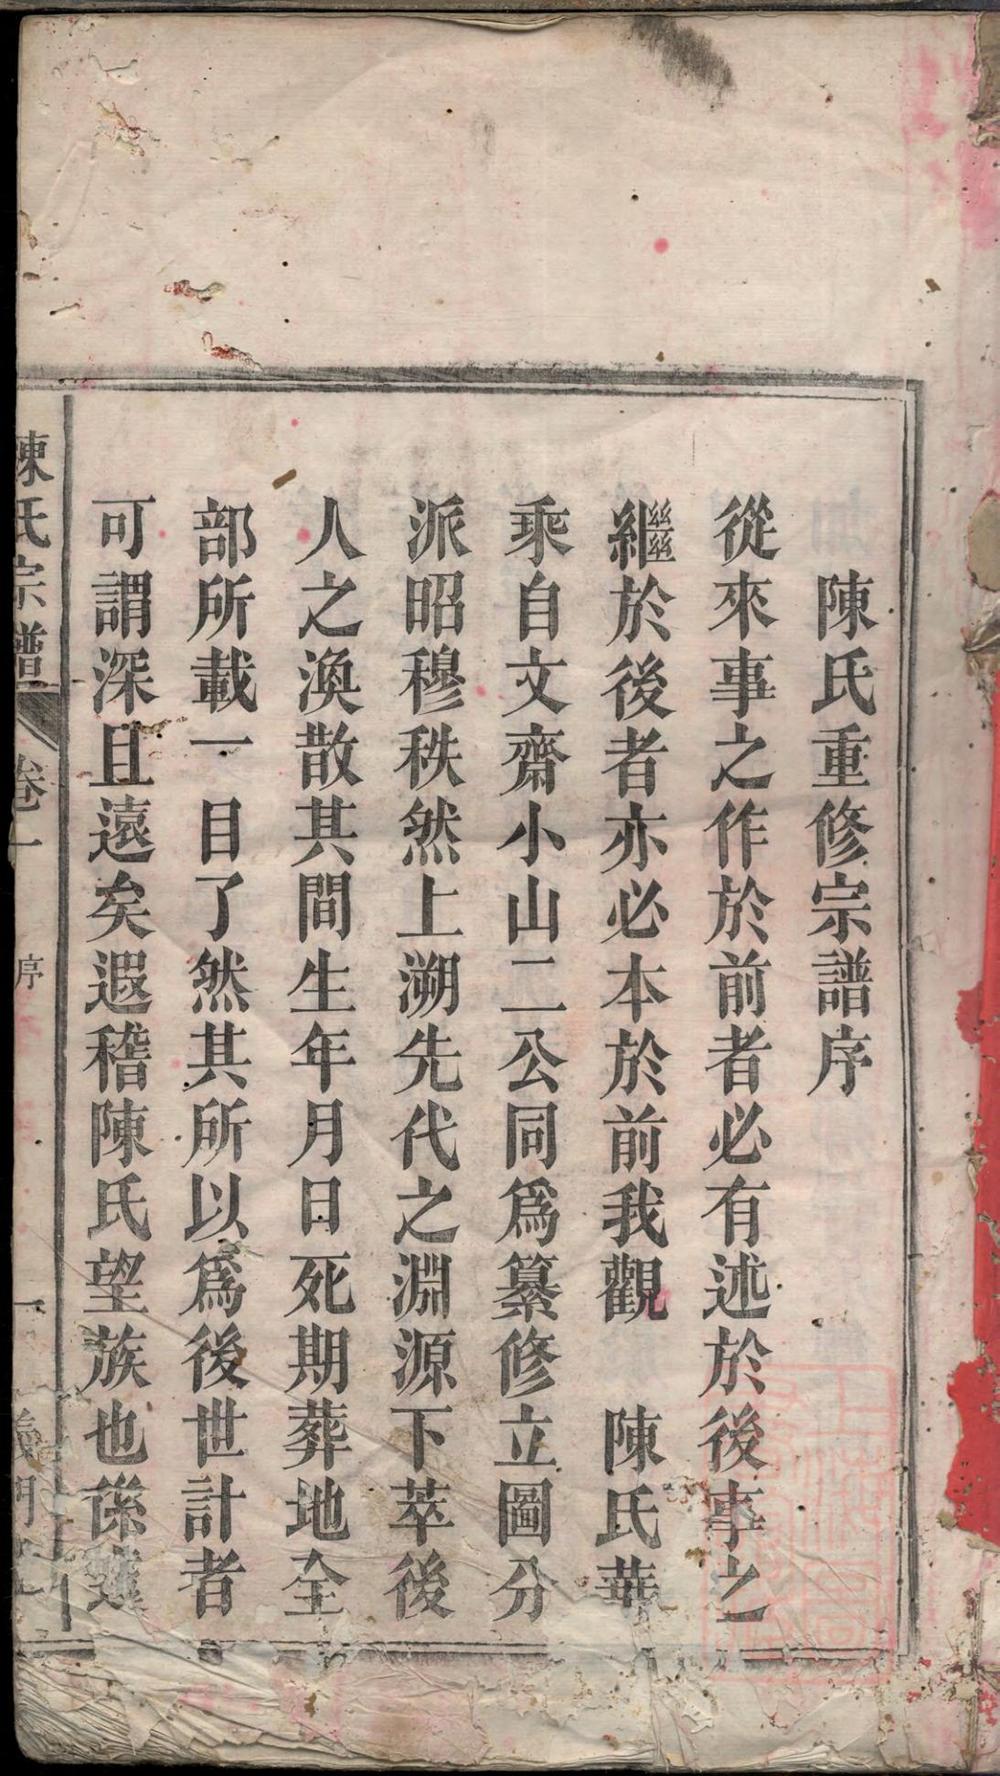 陳氏重修宗譜序
從來事之作於前者必有述於後事之
繼於後者亦必本於前我觀　陳氏華
乘自文齋小山二公同爲纂修立圖分
派昭穆秩然上溯先代之淵源下萃後
人之渙散其間生年月日死期葬地全
部所載一目了然其所以爲後世計者
可謂深且遠矣遐稽陳氏望族也係
陳氏宗譜　卷一　序　一　義門